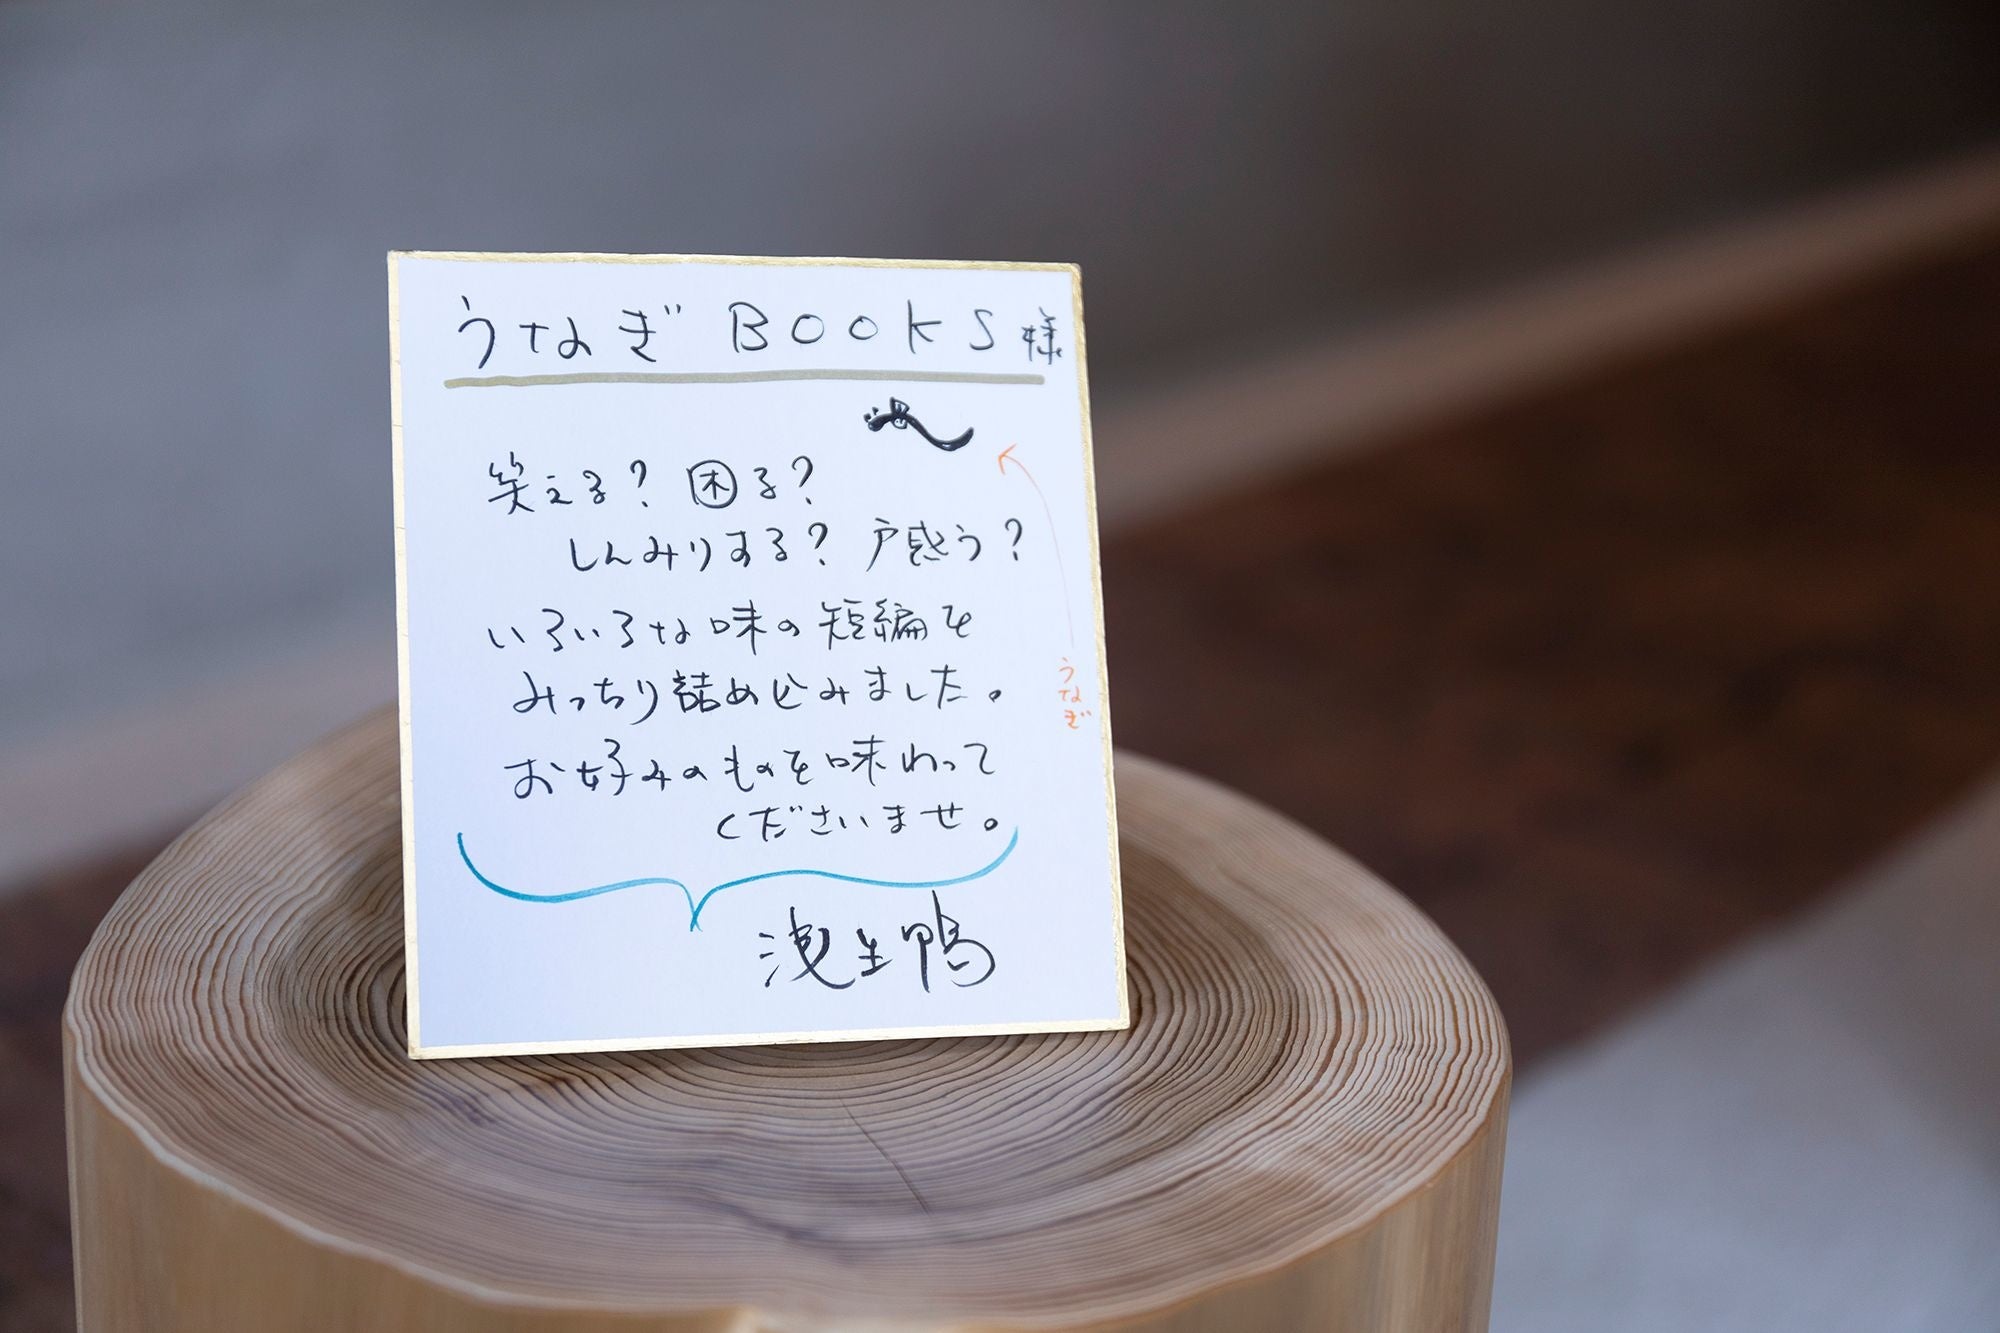 うなぎBOOKS様
笑える？困る？
しんみりする？戸惑う？
いろいろな味の短編を
みっちり詰め込みました。
お好みのものを味わって
くださいませ。
うなぎ
浅生鴨